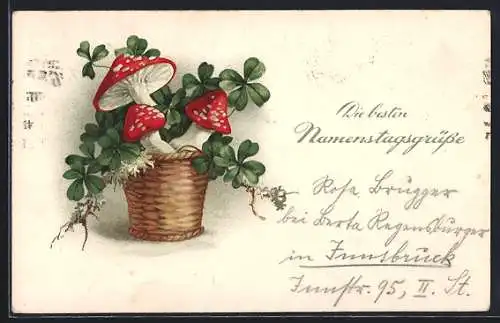 Die besten
Namenstagsgrüße
Rosa Brugger
bei Berta Regensburger
in Innsbruck
Innstr. 95, II. St.